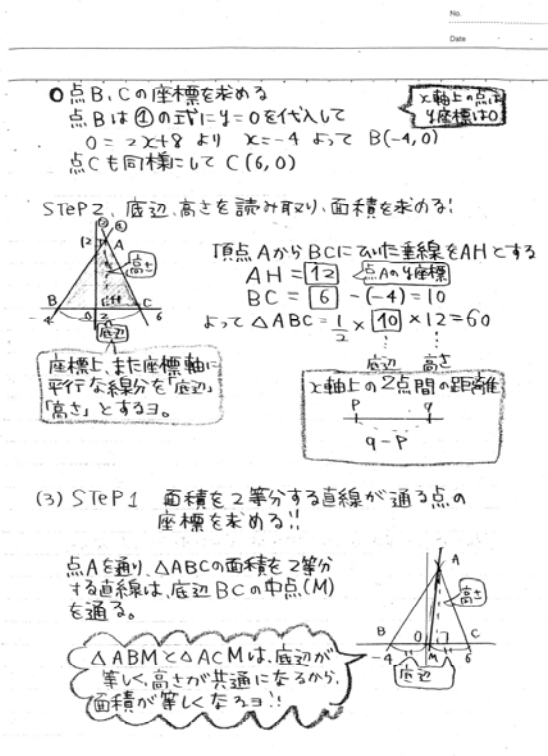 No.
Date
○点B、Cの座標を求める
x軸上の点は
y座標は0
点Bは①の式にy=0を代入して
0=2x+8 より x=-4 よって B(-4,0)
点Cも同様にして C(6,0)
STeP2、底辺、高さを読み取り、面積を求める!
② ①
12 A
高さ
B H C
-4 0 2 6
底辺
頂点AからBCにひいた垂線をAHとする
AH=12 点Aのy座標
BC=6-(-4)=10
よって△ABC=1/2×10×12=60
底辺 高さ
座標上、また座標軸に
平行な線分を「底辺」
「高さ」とするヨ。
x軸上の2点間の距離
P q
q-P
(3) STeP1 面積を2等分する直線が通る点の
座標を求める!!
点Aを通り、△ABCの面積を2等分
する直線は、底辺BCの中点(M)
を通る。
A
高さ
B O C
-4 M 6
底辺
△ABMと△ACMは、底辺が
等しく、高さが共通になるから、
面積が等しくなるヨ!!